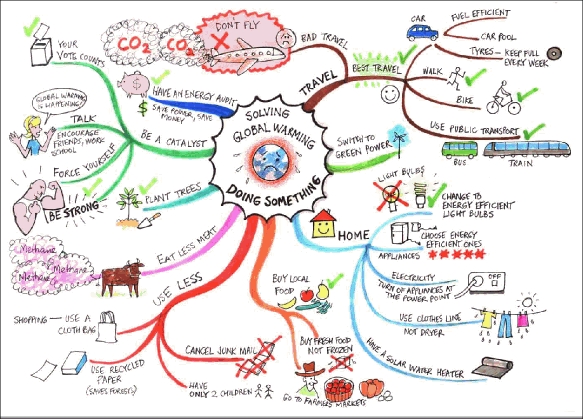 SOLVING
GLOBAL WARMING
DOING SOMETHING
TRAVEL
BAD TRAVEL
DON'T FLY
CO2
CO2
BEST TRAVEL
CAR
FUEL EFFICIENT
CAR POOL
TYRES - KEEP FULL
EVERY WEEK
WALK
BIKE
USE PUBLIC TRANSPORT
BUS
TRAIN
SWITCH TO
GREEN POWER
HOME
LIGHT BULBS
CHANGE TO
ENERGY EFFICIENT
LIGHT BULBS
CHOOSE ENERGY
EFFICIENT ONES
APPLIANCES
ELECTRICITY
TURN OF APPLIANCES AT
THE POWER POINT
OFF
USE CLOTHES LINE
NOT DRYER
HAVE A SOLAR WATER HEATER
BUY LOCAL
FOOD
BUY FRESH FOOD
NOT FROZEN
GO TO FARMERS MARKETS
USE LESS
CANCEL JUNK MAIL
HAVE
ONLY 2 CHILDREN
USE RECYCLED
PAPER
(SAVES FORESTS)
SHOPPING - USE A
CLOTH BAG
EAT LESS MEAT
Methane
Methane
Methane
PLANT TREES
BE A CATALYST
FORCE YOURSELF
BE STRONG
TALK
ENCOURAGE
FRIENDS, WORK
SCHOOL
GLOBAL WARMING
IS HAPPENING!
YOUR
VOTE COUNTS
HAVE AN ENERGY AUDIT
$ SAVE POWER, SAVE
MONEY